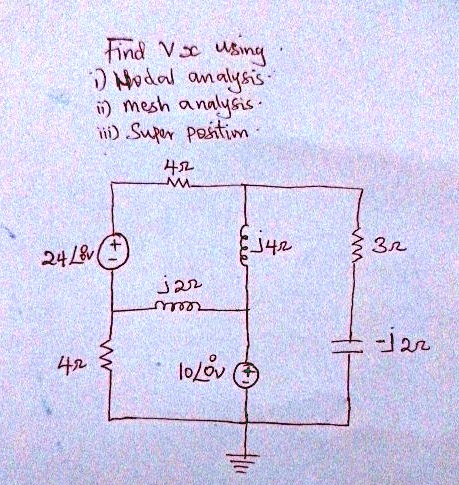 Find Vx using
i) Nodal analysis.
ii) mesh analysis.
iii) Super position.
4Ω
24∠8v
+
-
j4Ω
3Ω
j2Ω
-j2Ω
4Ω
10∠0°v
+
-